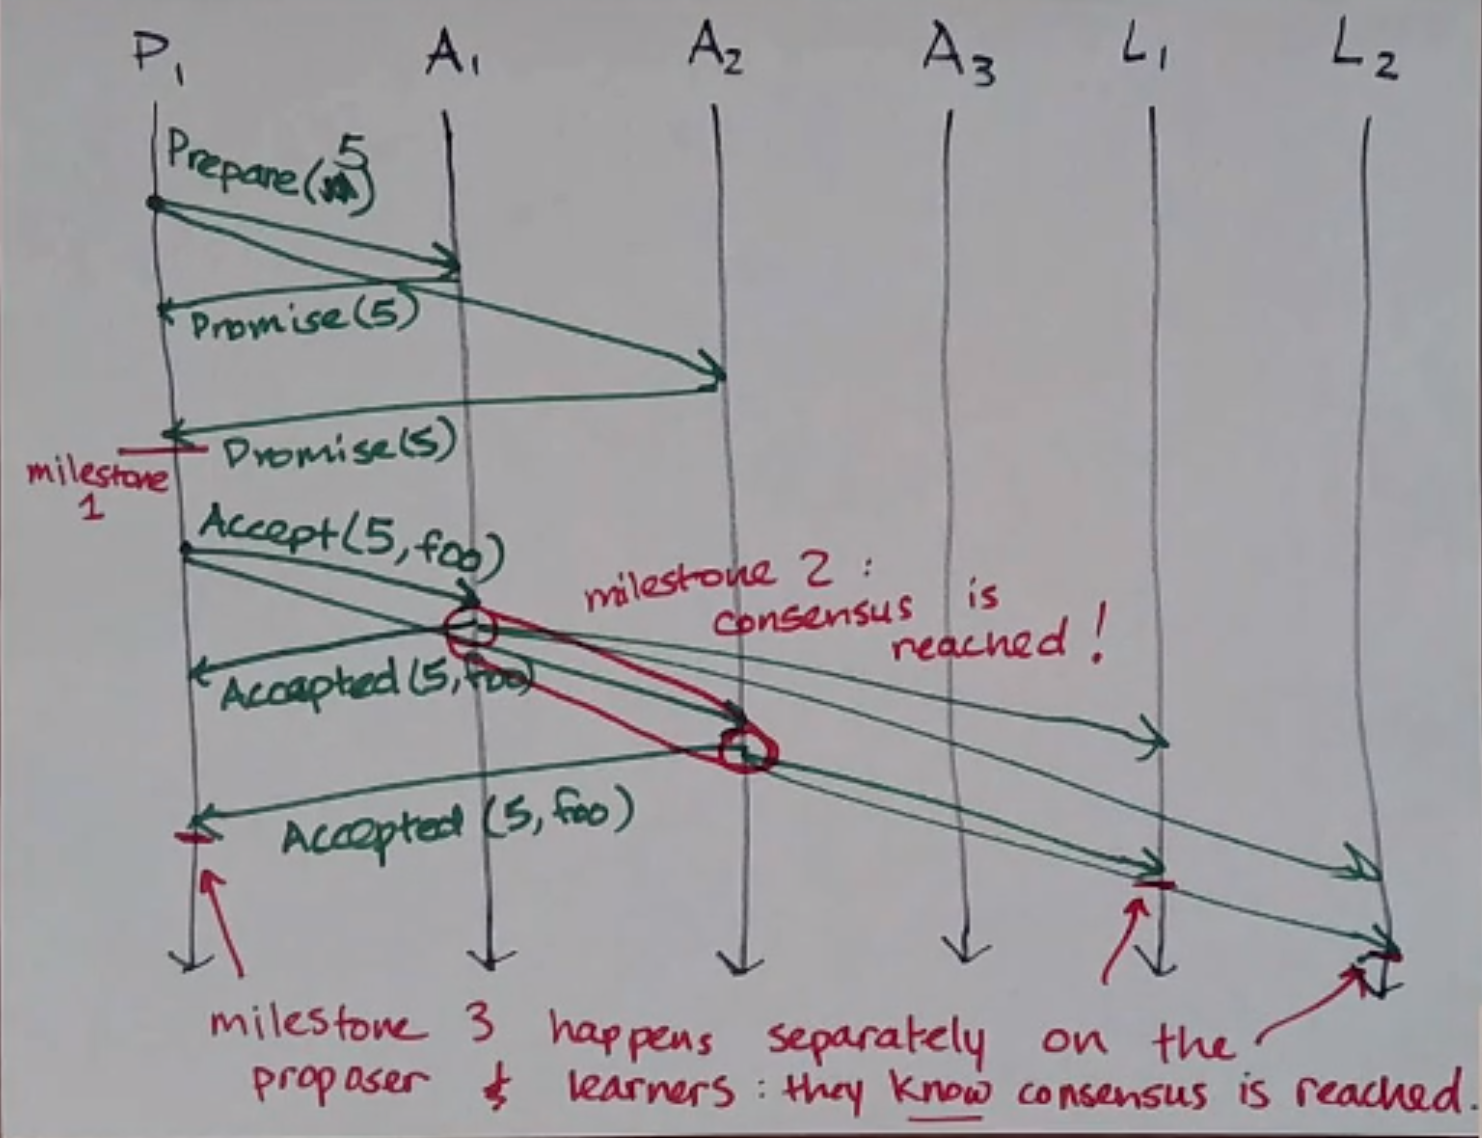 P₁ A₁ A₂ A₃ L₁ L₂
Prepare(5)
Promise(5)
Promise(5)
milestone
1
Accept(5,foo)
milestone 2:
consensus is
reached!
Accepted(5,foo)
Accepted (5,foo)
milestone 3 happens separately on the
proposer & learners: they know consensus is reached.